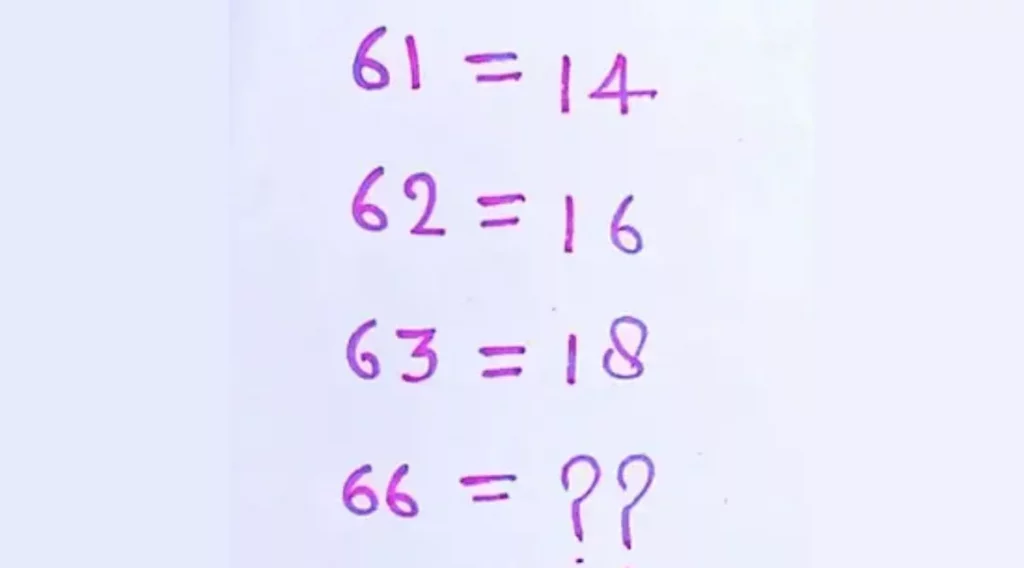 61 = 14
62 = 16
63 = 18
66 = ??